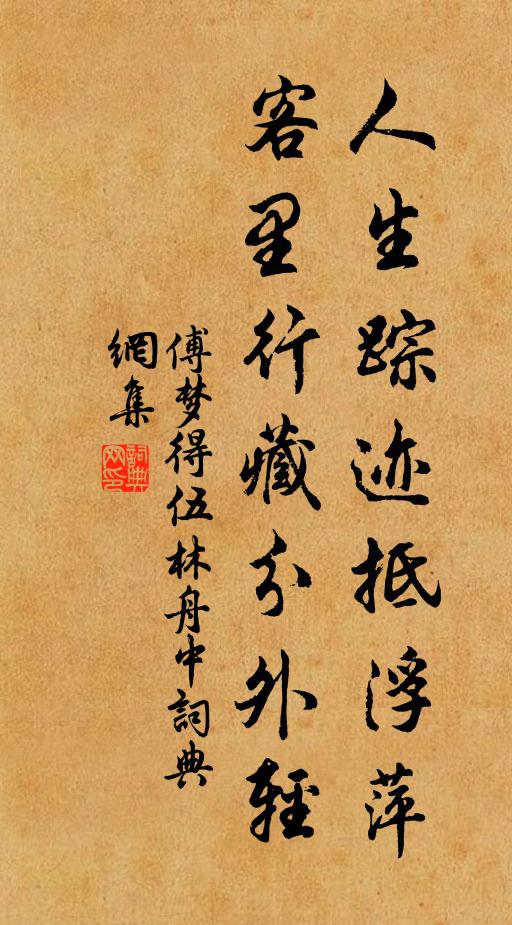 人生踪迹抵浮萍
客里行藏分外輕
傅梦得伍林舟中詞典
網集
詞典
网印